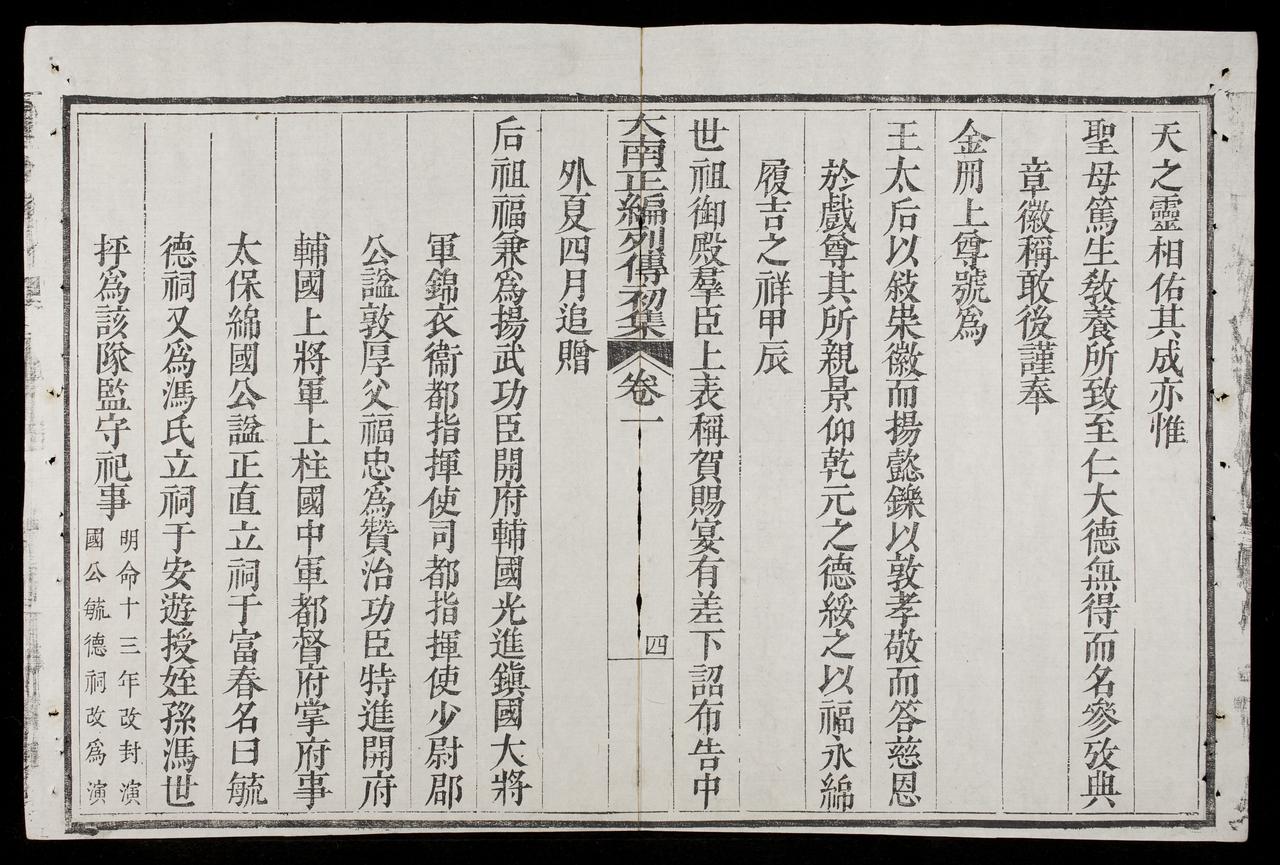 天之靈相佑其成亦惟
聖母篤生敎養所致至仁大德無得而名參攷典
章徽稱敢後謹奉
金册上尊號爲
王太后以敍崇徽而揚懿鑠以敦孝敬而答慈恩
於戲尊其所親景仰乾元之德綏之以福永綿
履吉之祥甲辰
世祖御殿羣臣上表稱賀賜宴有差下詔布告中
大南正編列傳初集 卷一 四
外夏四月追贈
后祖福兼爲揚武功臣開府輔國光進鎭國大將
軍錦衣衞都指揮使司都指揮使少尉郡
公謚敦厚父福忠爲贊治功臣特進開府
輔國上將軍上柱國中軍都督府掌府事
太保綿國公謚正直立祠于富春名曰毓
德祠又爲馮氏立祠于安遊授姪孫馮世
抨爲該隊監守祀事
明命十三年改封演
國公毓德祠改爲演